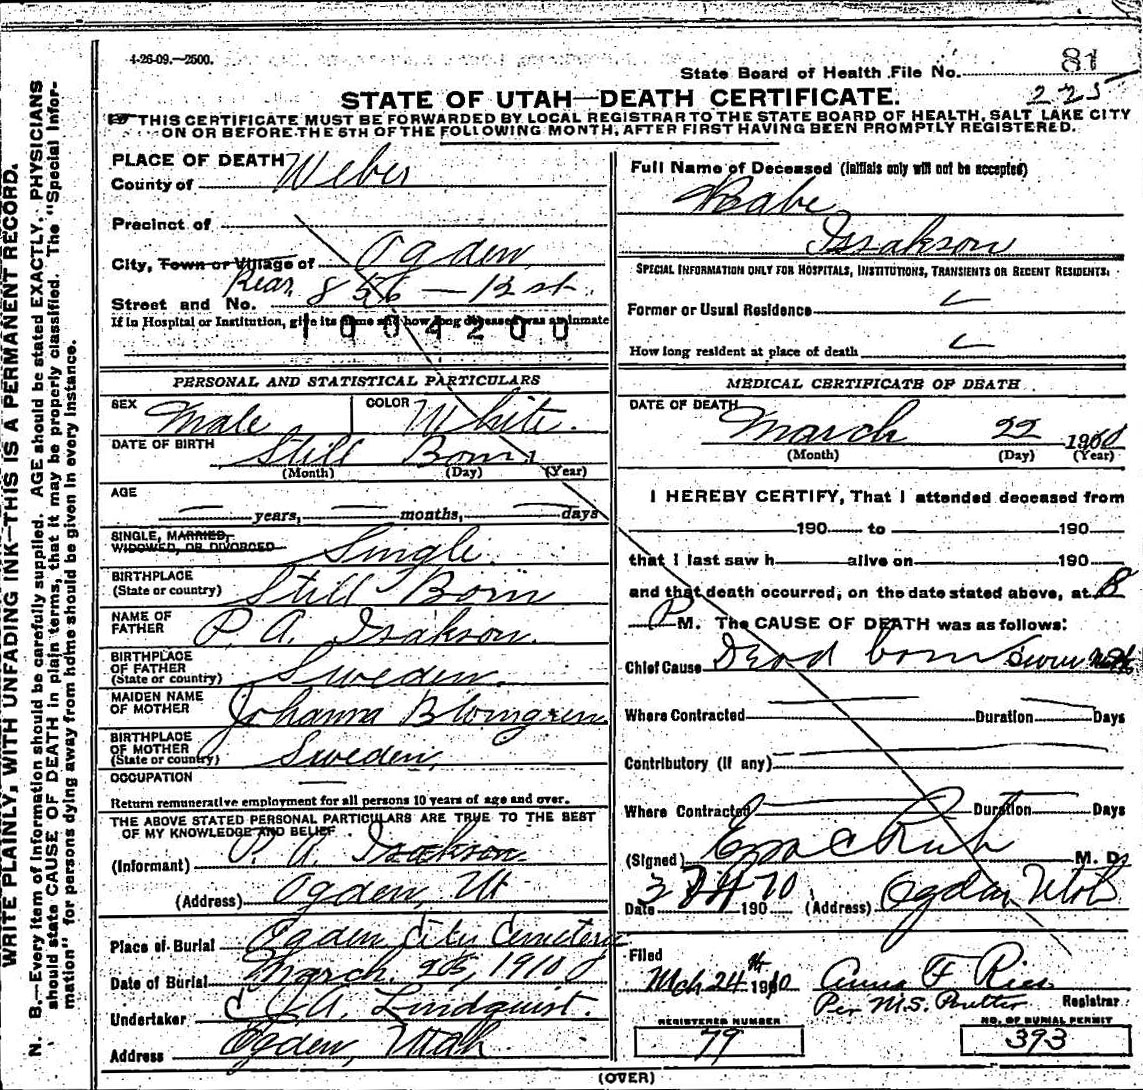 4-26-09.—2500.
State Board of Health File No. 81
225
STATE OF UTAH—DEATH CERTIFICATE.
THIS CERTIFICATE MUST BE FORWARDED BY LOCAL REGISTRAR TO THE STATE BOARD OF HEALTH, SALT LAKE CITY
ON OR BEFORE THE 5TH OF THE FOLLOWING MONTH, AFTER FIRST HAVING BEEN PROMPTLY REGISTERED.
WRITE PLAINLY, WITH UNFADING INK—THIS IS A PERMANENT RECORD.
N. B.—Every item of information should be carefully supplied. AGE should be stated EXACTLY. PHYSICIANS
should state CAUSE OF DEATH in plain terms, that it may be properly classified. The "Special Infor-
mation" for persons dying away from home should be given in every instance.
PLACE OF DEATH
County of Weber
Precinct of
City, Town or Village of Ogden
Street and No. Rear 856 — 12 st.
If in Hospital or Institution, give its name and how long deceased was an inmate
1004200
PERSONAL AND STATISTICAL PARTICULARS
SEX Male COLOR White.
DATE OF BIRTH Still Born
(Month) (Day) (Year)
AGE
years, months, days
SINGLE, MARRIED,
WIDOWED, OR DIVORCED Single.
BIRTHPLACE
(State or country) Still Born
NAME OF
FATHER P. A. Isakson.
BIRTHPLACE
OF FATHER
(State or country) Sweden.
MAIDEN NAME
OF MOTHER Johanna Blomgren
BIRTHPLACE
OF MOTHER
(State or country) Sweden,
OCCUPATION
Return remunerative employment for all persons 10 years of age and over.
THE ABOVE STATED PERSONAL PARTICULARS ARE TRUE TO THE BEST
OF MY KNOWLEDGE AND BELIEF.
(Informant) P. A. Isakson.
(Address) Ogden, Ut
Place of Burial Ogden City Cemetery
Date of Burial March 25, 1910
Undertaker C. J. A. Lindquist.
Address Ogden, Utah
Full Name of Deceased (Initials only will not be accepted)
Babe
Issakson
SPECIAL INFORMATION ONLY FOR HOSPITALS, INSTITUTIONS, TRANSIENTS OR RECENT RESIDENTS.
Former or Usual Residence
How long resident at place of death
MEDICAL CERTIFICATE OF DEATH
DATE OF DEATH
March 22 1910
(Month) (Day) (Year)
I HEREBY CERTIFY, That I attended deceased from
190 to 190
that I last saw h alive on 190
and that death occurred, on the date stated above, at 8
P M. The CAUSE OF DEATH was as follows:
Chief Cause Dead born
Where Contracted Duration Days
Contributory (if any)
Where Contracted Duration Days
(Signed) Ezra C Rich M. D.
Date 190 (Address) Ogden Utah
Filed
Mch 24th 1910 Anna F Rice
Per M.S. Poulter Registrar
REGISTERED NUMBER
79
NO. OF BURIAL PERMIT
393
(OVER)